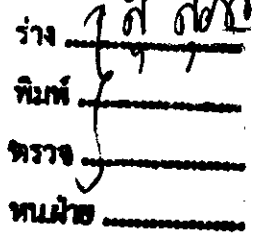 ร่าง
พิมพ์
ตรวจ
หน.ฝ่าย